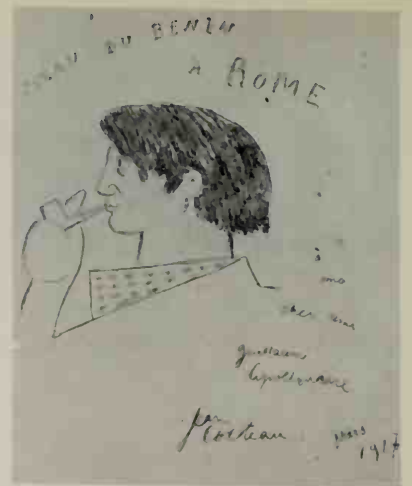 DU BENIN
A ROME
à
mon
cher
guillaume
Apollinaire
Jean
Cocteau
Mars
1917